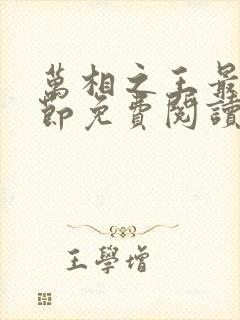 萬相之王最
節免費閱讀
王學增